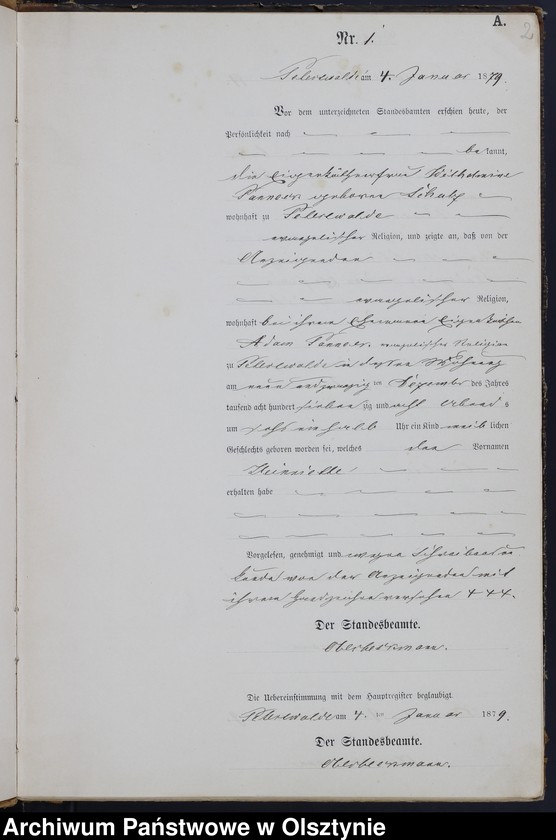 A.
2
Nr. 1.
Peterswalde am 4. Januar 1879.
Vor dem unterzeichneten Standesbeamten erschien heute, der
Persönlichkeit nach
bekannt,
die Eigenkäthnerfrau Wilhelmine
geborene Schulz
wohnhaft zu Peterswalde
evangelischer Religion, und zeigte an, daß von der
Anzeigenden
evangelischer Religion,
wohnhaft bei ihrem Ehemanne Eigenkäthner
Adam evangelischer Religion
zu Peterswalde in dessen Wohnung
am neun und zwanzigten Dezember des Jahres
tausend acht hundert siebenzig und acht Abends
um acht einhalb Uhr ein Kind weiblichen
Geschlechts geboren worden sei, welches den Vornamen
Heinriette
erhalten habe
Vorgelesen, genehmigt und wegen Schreibensun
kunde von der Anzeigenden mit
ihrem Handzeichen versehen + + +.
Der Standesbeamte.
Die Uebereinstimmung mit dem Hauptregister beglaubigt.
Peterswalde am 4. ten Januar 1879.
Der Standesbeamte.
Archiwum Państwowe w Olsztynie